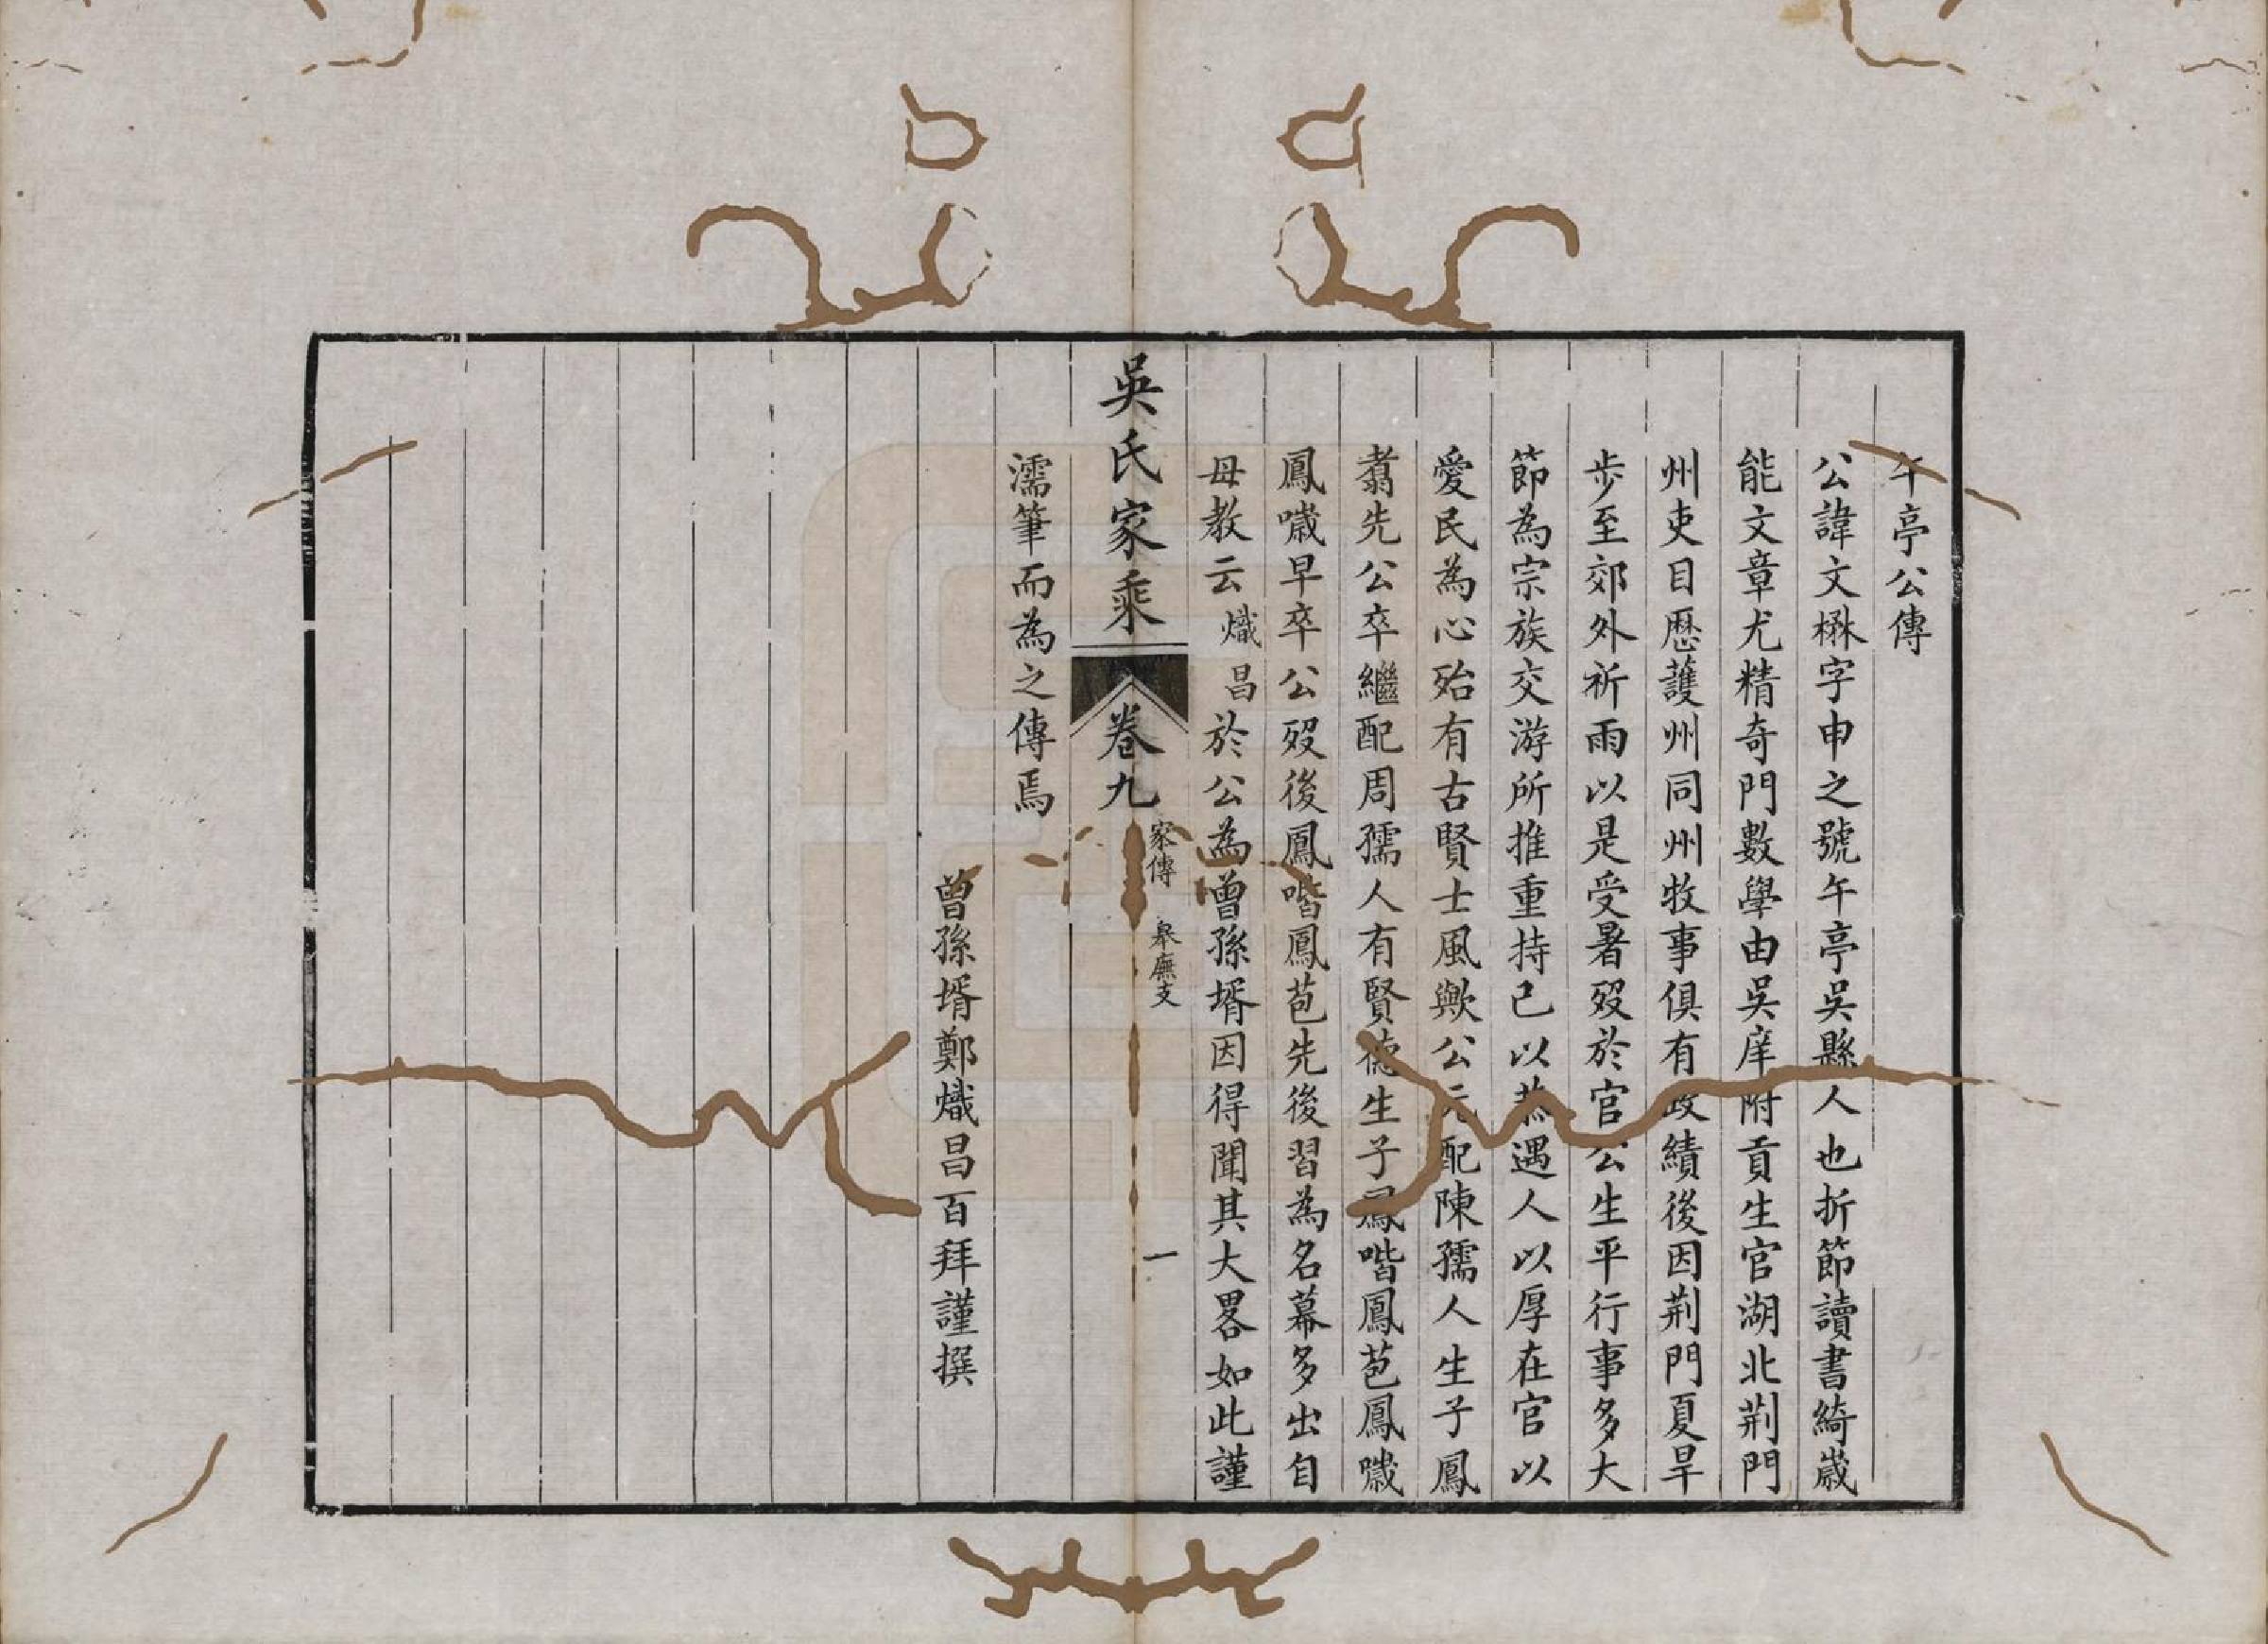 午亭公傳
公諱文楙字申之號午亭吳縣人也折節讀書綺歲
能文章尤精奇門數學由吳庠附貢生官湖北荆門
州吏目歷護州同州牧事俱有政績後因荆門夏旱
步至郊外祈雨以是受暑歿於官公生平行事多大
節為宗族交游所推重持己以恭遇人以厚在官以
愛民為心殆有古賢士風歟公元配陳孺人生子鳳
翥先公卒繼配周孺人有賢德生子鳳喈鳳苞鳳噦
鳳噦早卒公歿後鳳喈鳳苞先後習為名幕多出自
母教云熾昌於公為曾孫壻因得聞其大畧如此謹
吳氏家乘 卷九 家傳 皋廡支 一
濡筆而為之傳焉
曾孫壻鄭熾昌百拜謹撰